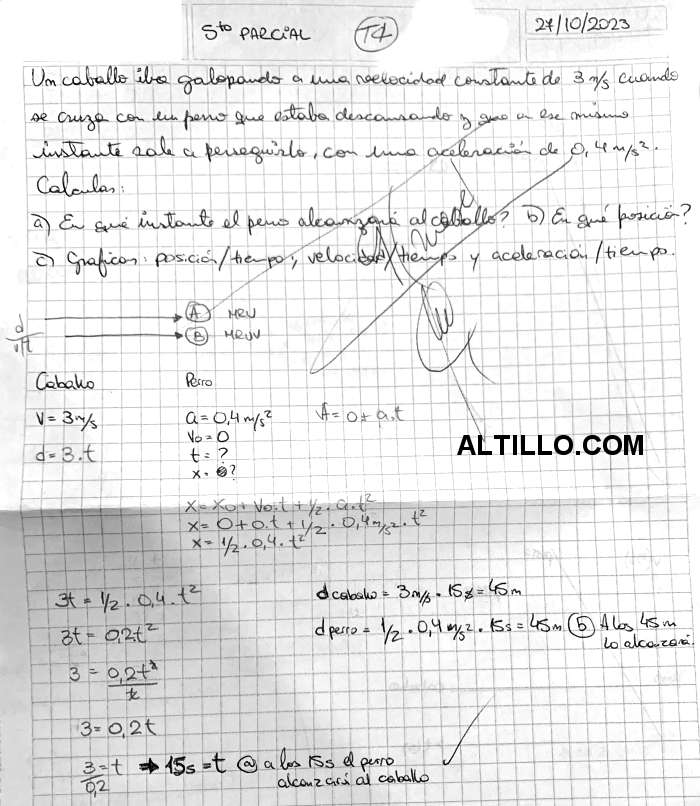 5to PARCIAL
T4
27/10/2023
Un caballo iba galopando a una velocidad constante de 3 m/s cuando
se cruza con un perro que estaba descansando y que en ese mismo
instante sale a perseguirlo, con una aceleración de 0,4 m/s².
Calcular:
a) En qué instante el perro alcanzará al caballo? b) En qué posición?
c) Graficos: posición/tiempo, velocidad/tiempo y aceleración/tiempo.
A MRU
d
v|t
B MRUV
Caballo Perro
V = 3 m/s a = 0,4 m/s² Vf = 0 + a.t
V0 = 0
d = 3.t t = ?
x = ?
ALTILLO.COM
x = x0 + V0.t + 1/2 . a.t²
x = 0 + 0.t + 1/2 . 0,4 m/s² . t²
x = 1/2 . 0,4 . t²
3t = 1/2 . 0,4 . t² d caballo = 3 m/s . 15 s = 45 m
3t = 0,2t² d perro = 1/2 . 0,4 m/s² . 15 s = 45 m b A los 45 m
lo alcanzará.
3 = 0,2t²
t
3 = 0,2t
3 = t ⇒ 15s = t a a los 15s el perro
0,2 alcanzará al caballo